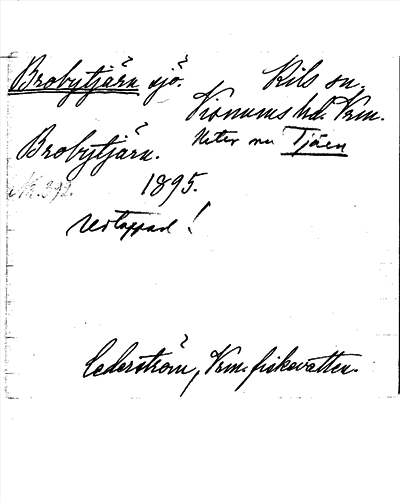 Brobytjärn sjö. Kils sn.
Visnums hd. Vrm.
Brobytjärn. Heter nu Tjäen
Nr. 392. 1895.
uttappad!
Cederström, Vrm. fiskevatten.